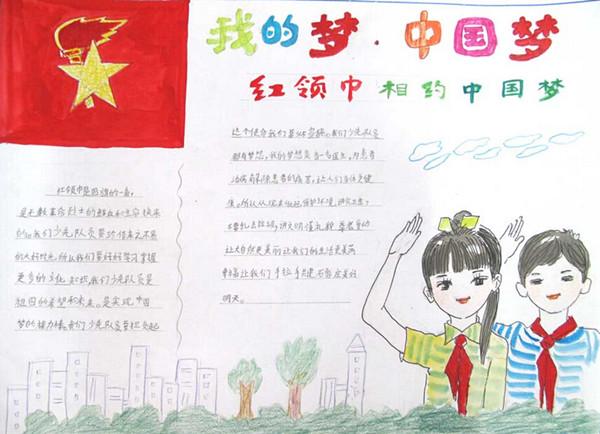 我的梦·中国梦
红领巾相约中国梦
红领巾是国旗的一角,
是无数革命烈士的鲜血和生命换来
的。我们少先队员要珍惜来之不易
的大好时光,所以我们要好好学习掌握
更多的文化知识,我们少先队员是
祖国的希望和未来。是实现中国
梦的接力棒。我们少先队员要担负起
这个使命我们要从
实施。我们少先队员
都有梦想,我的梦想是当一名医生,为患者
治病解除患者的痛苦,让人们生活更健
康。所以从现在做起保护环境,讲究卫生,
不要乱丢垃圾,讲文明懂礼貌,尊老爱幼
让大自然更美丽让我们的生活更美满
幸福让我们手拉手共建和谐美好
明天。